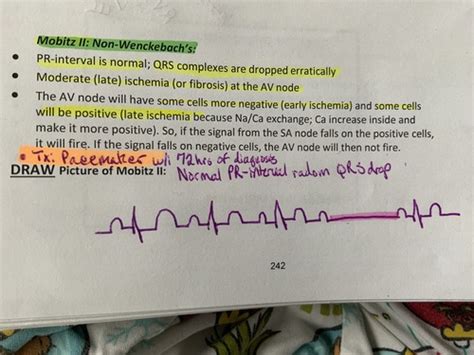 Mobitz II: Non-Wenckebach's:
• PR-interval is normal; QRS complexes are dropped erratically
• Moderate (late) ischemia (or fibrosis) at the AV node
• The AV node will have some cells more negative (early ischemia) and some cells
will be positive (late ischemia because Na/Ca exchange; Ca increase inside and
make it more positive). So, if the signal from the SA node falls on the positive cells,
it will fire. If the signal falls on negative cells, the AV node will then not fire.
• Tx: Pacemaker w/i 72hrs of diagnosis
DRAW Picture of Mobitz II: Normal PR-interval radom QRS drop
242